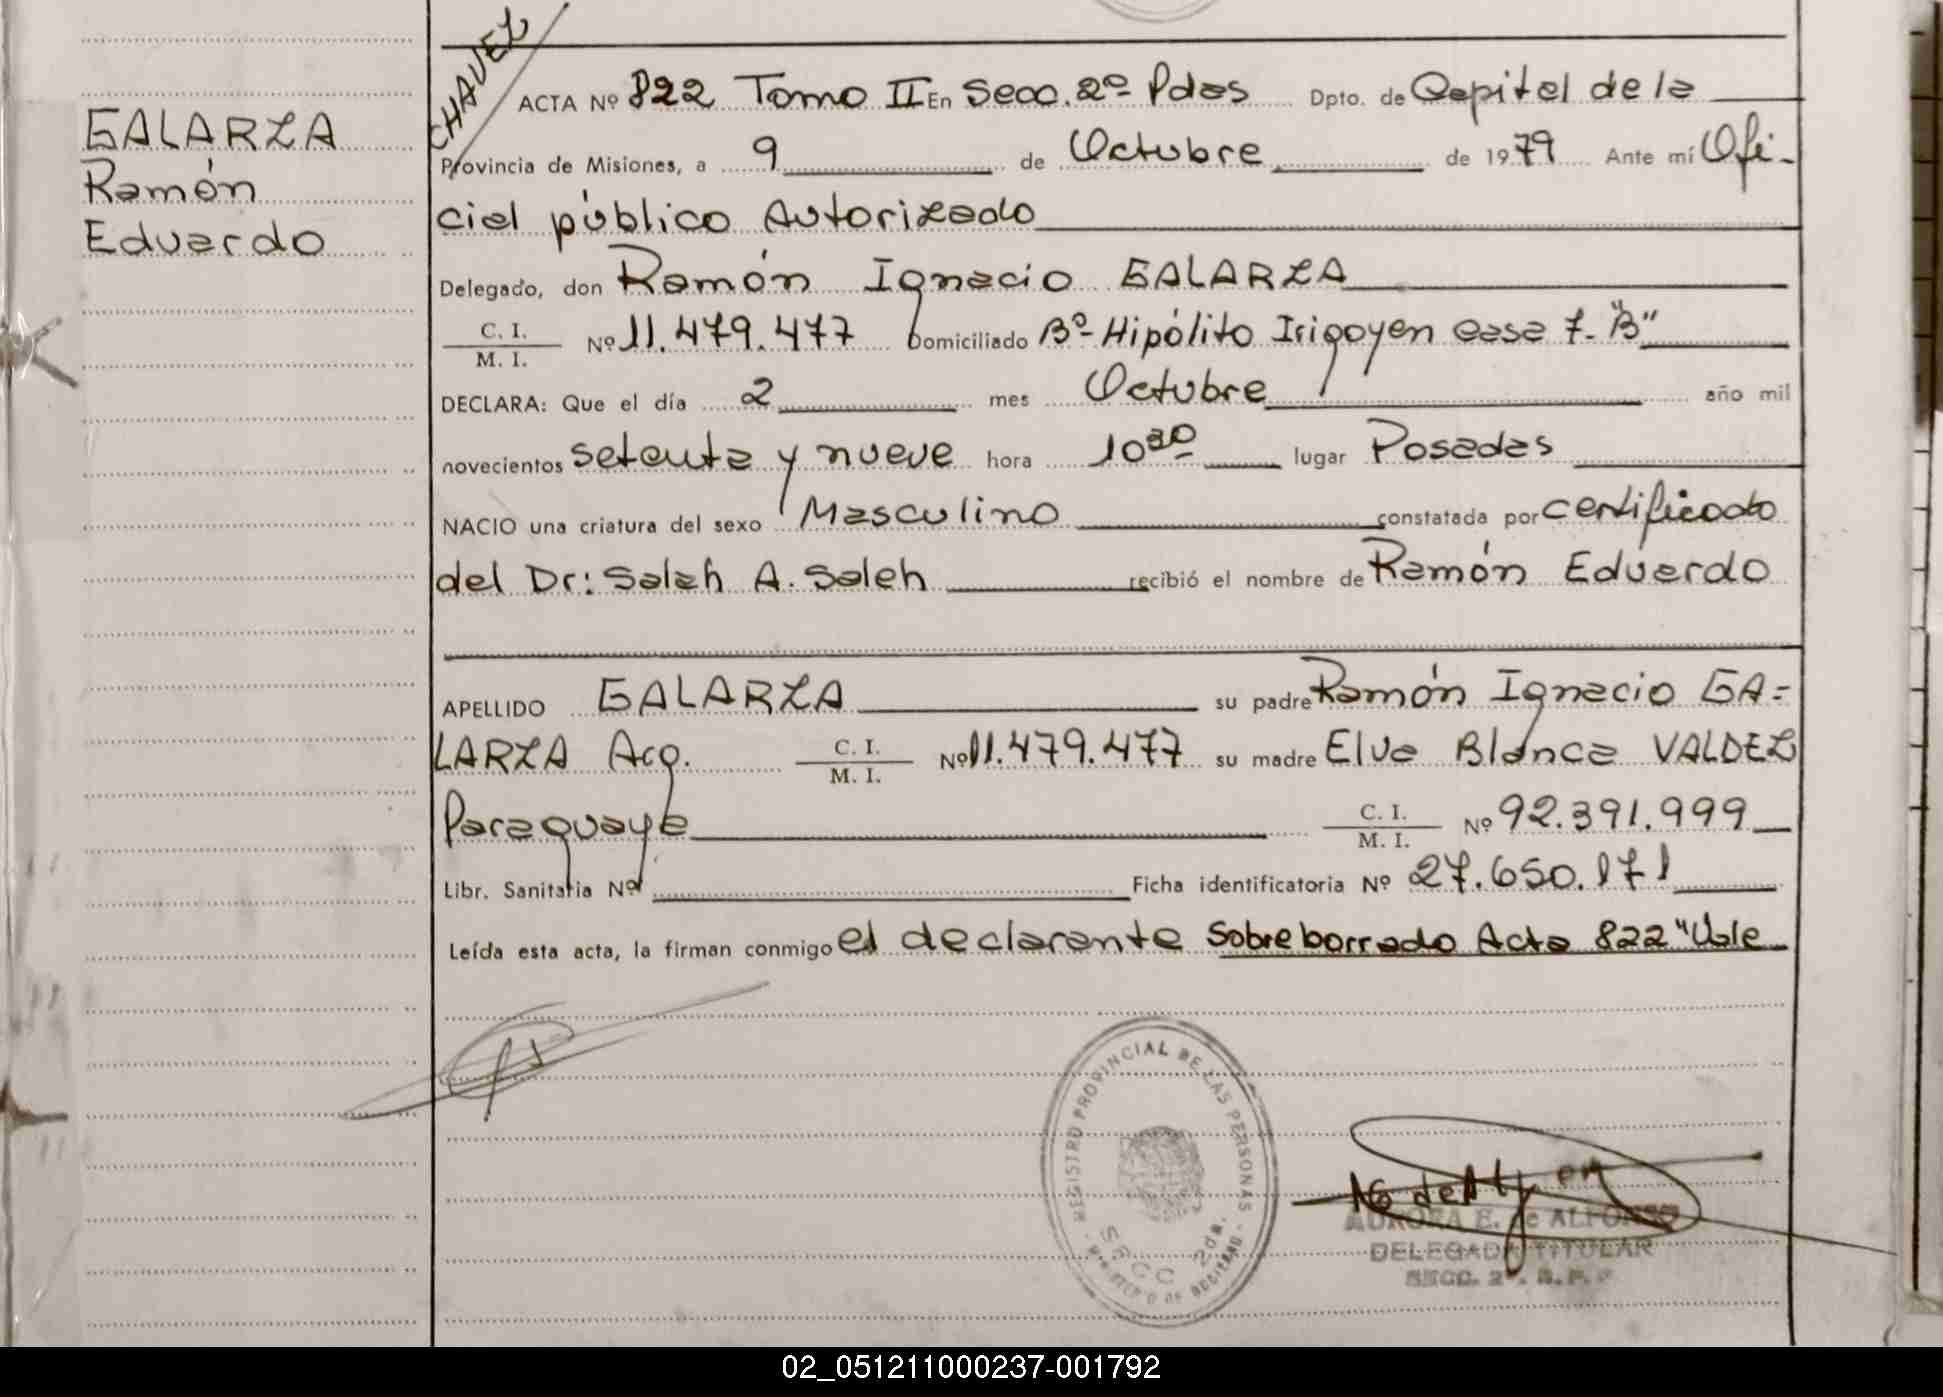 CHAVEZ
GALARZA
Ramón
Eduardo
ACTA Nº 822 Tomo II En Secc. 2º Pdas Dpto. de Capital de la
Provincia de Misiones, a 9 de Octubre de 1979 Ante mí Ofi-
cial público Autorizado
Delegado, don Ramón Ignacio GALARZA
C. I.
M. I. Nº 11.479.477 Domiciliado Bº Hipólito Irigoyen casa 7-"B"
DECLARA: Que el día 2 mes Octubre año mil
novecientos setenta y nueve hora 10 30 lugar Posadas
NACIO una criatura del sexo Masculino constatada por certificado
del Dr: Saleh A. Saleh recibió el nombre de Ramón Eduardo
APELLIDO GALARZA su padre Ramón Ignacio GA=
LARZA Arg. C. I.
M. I. Nº 11.479.477 su madre Elva Blanca VALDEZ
Paraguaya C. I.
M. I. Nº 92.391.999
Libr. Sanitaria Nº Ficha identificatoria Nº 27.650.171
Leída esta acta, la firman conmigo el declarante Sobre borrado Acta 822 "Vale
REGISTRO PROVINCIAL DE LAS PERSONAS
SECC 2da.
AURORA E. de ALFONSO
DELEGADA TITULAR
SECC. 2ª. R. P.
02_051211000237-001792